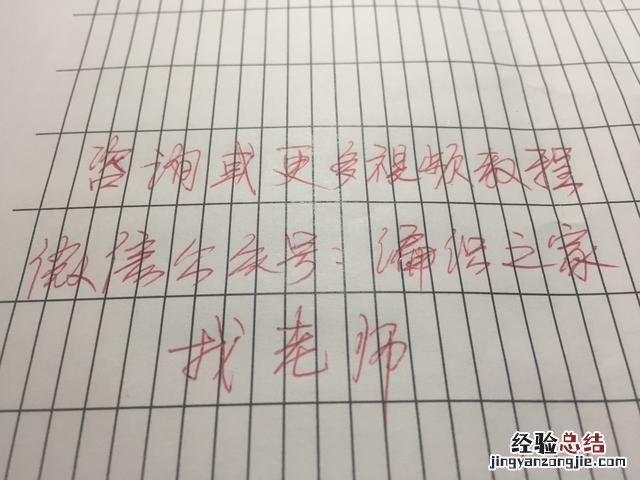 咨询或更多视频教程
微信公众号：编织之家
找老师
经验总结
jingyanzongjie.com